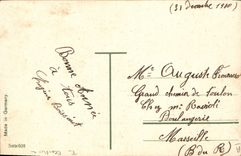 (31 décembre 1910)
Bonne Année
à tous
Mr Auguste
Grand chemin de Toulon
Chez Mr
Boulangerie
Marseille
(B du R)
Made in Germany
Serie 608